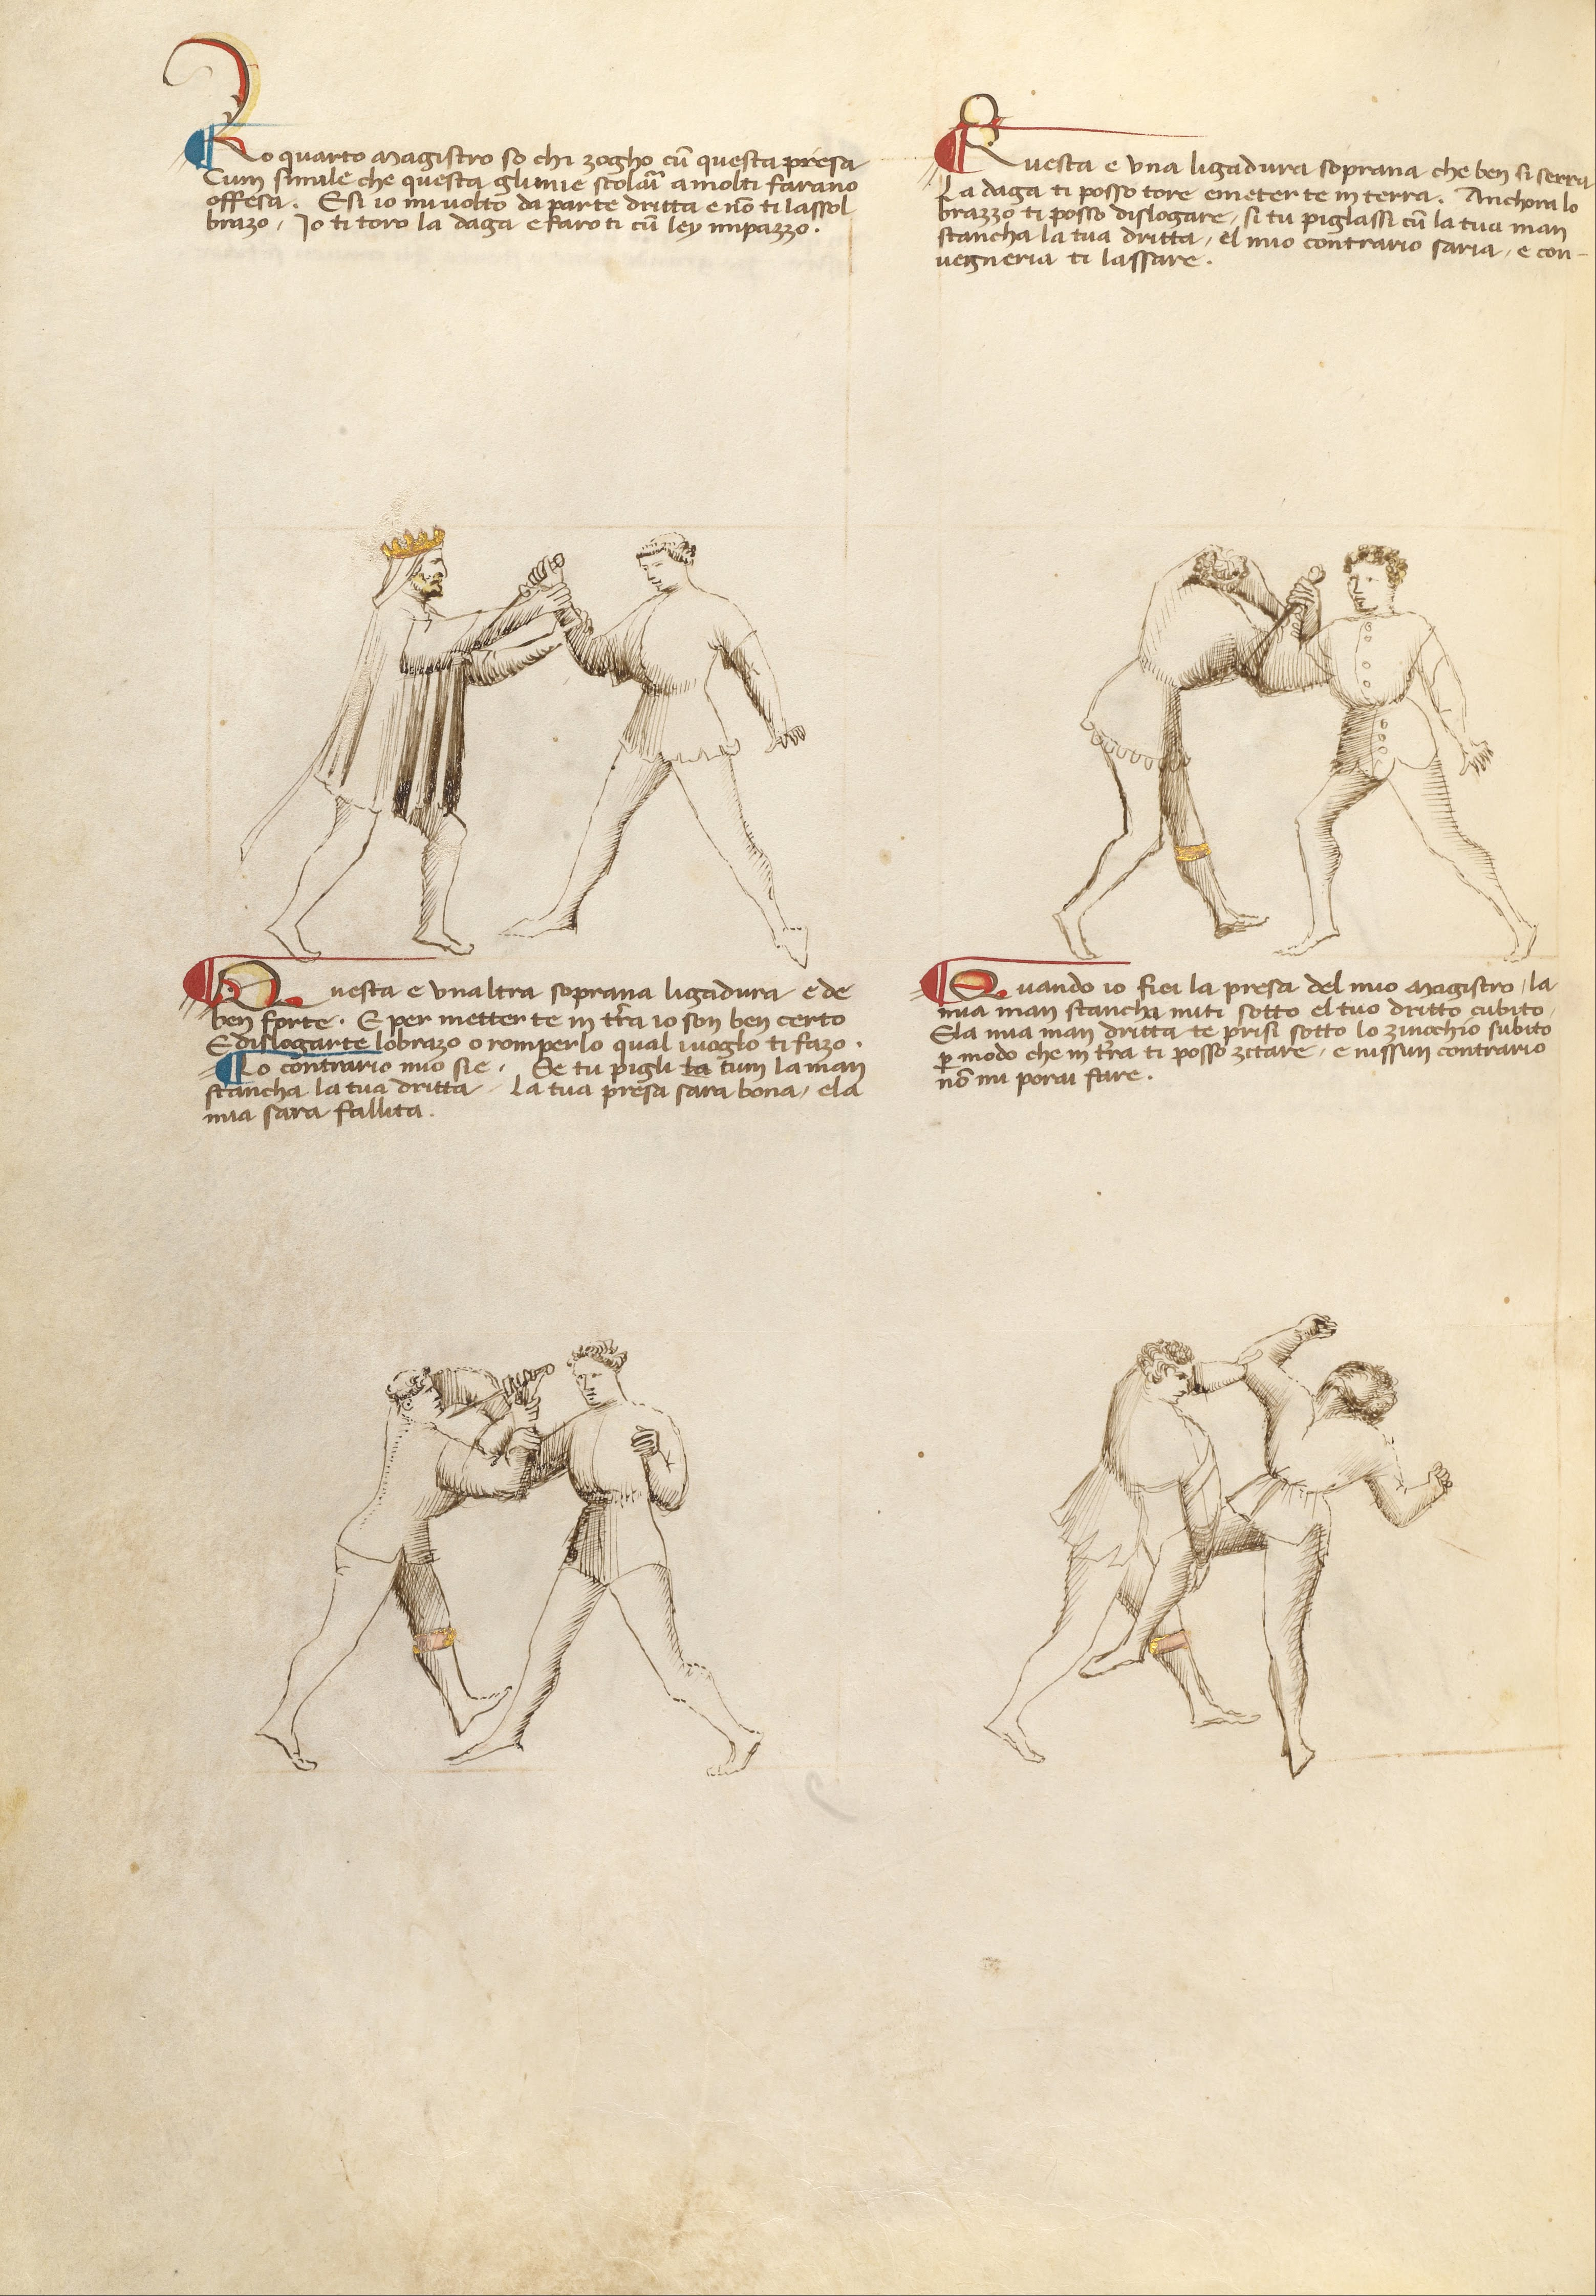 Lo quarto magistro so chi zogho cũ questa presa
Cum simile che questa gli mie scolarī a molti farano
offesa. E si io mi volto da parte dritta e nõ ti lasso l
brazo, Io ti toro la daga e faro ti cũ ley impazzo.
Questa e una ligadura soprana che ben si serra
La daga ti posso tore e meter te in terra. Anchora lo
brazzo ti posso dislogare, si tu piglassi cũ la tua man
stancha la tua dritta, el mio contrario saria, e con-
vegneria ti lassare.
Questa e unaltra soprana ligadura e de
ben forte. E per metter te in tr̃a io son ben certo
E dislogarte lo brazo o romperlo qual i voglo ti fazo.
Lo contrario mio sie. Se tu pigli ta cum la man
stancha la tua dritta La tua presa sara bona, e la
mia sara fallita.
Quando io fici la presa del mio magistro, la
mia man stancha miti sotto el tuo dritto cubito,
E la mia man dritta te prisi sotto lo zinochio subito
ꝑ modo che in tr̃a ti posso zitare, e nissun contrario
nõ mi porai fare.